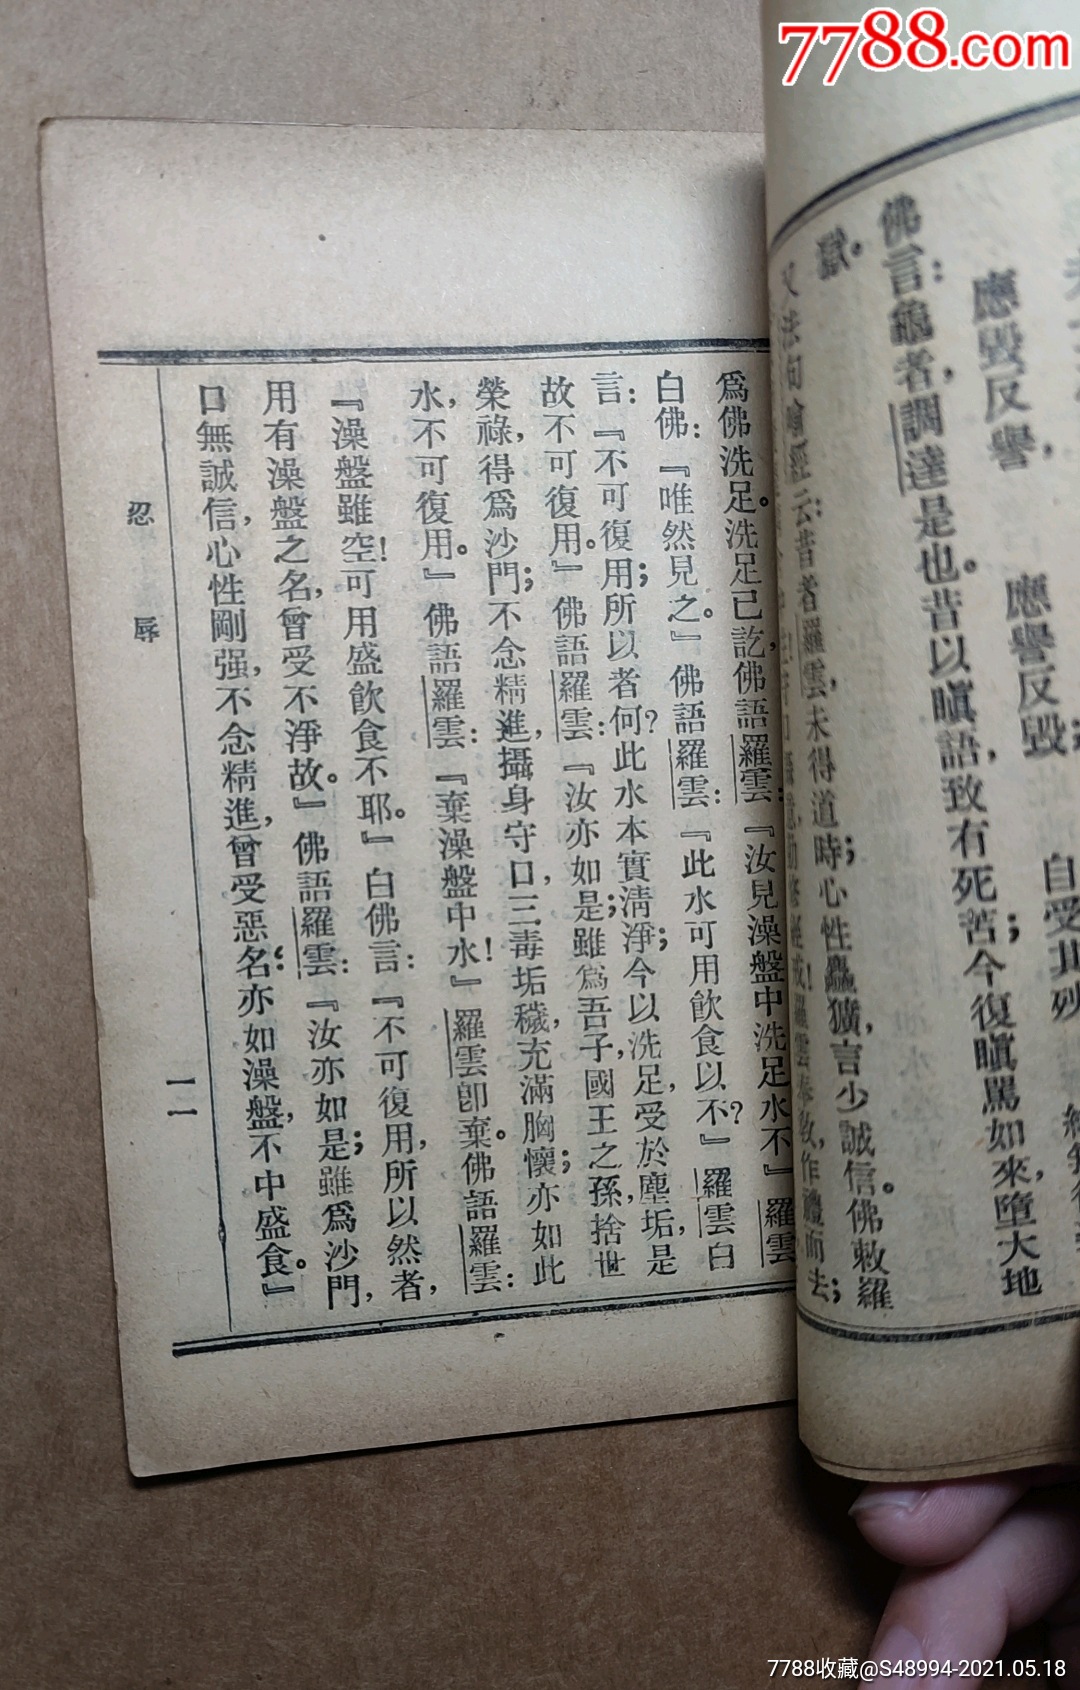 7788.com
應毀反譽,
應譽反毀
自受其殃
佛言:龜者,調達是也。昔以瞋語,致有死苦;今復瞋罵如來,墮大地
獄。
又法句喻經云:昔者羅雲,未得道時;心性麤獷,言少誠信。佛敕羅
作禮而去;
爲佛洗足。洗足已訖,佛語羅雲:『汝見澡盤中洗足水不』羅雲
白佛:『唯然見之。』佛語羅雲:『此水可用飲食以不?』羅雲白
言:『不可復用;所以者何?此水本實淸淨;今以洗足,受於塵垢,是
故不可復用。』佛語羅雲:『汝亦如是;雖爲吾子,國王之孫,捨世
榮祿,得爲沙門;不念精進,攝身守口,三毒垢穢,充滿胸懷;亦如此
水,不可復用。』佛語羅雲:『棄澡盤中水!』羅雲卽棄。佛語羅雲:
『澡盤雖空!可用盛飮食不耶。』白佛言:『不可復用,所以然者,
用有澡盤之名,曾受不淨故。』佛語羅雲:『汝亦如是;雖爲沙門,
口無誠信,心性剛强,不念精進,曾受惡名;亦如澡盤,不中盛食。』
忍辱
一一
7788收藏@S48994-2021.05.18